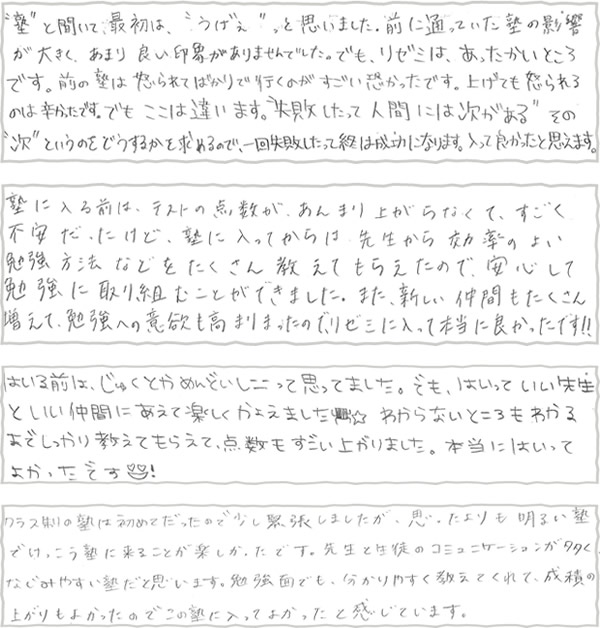 "塾"と聞いて、最初は、"うげぇ"っと思いました。前に通っていた塾の影響
が大きく、あまり良い印象がありませんでした。でも、リゼミは、あったかいところ
です。前の塾は怒られてばかりで行くのがすごい恐かったです。上げても怒られる
のは辛かったです。でもここは違います。"失敗したって人間には次がある"その
"次"というのをどうするかを求めるので、一回失敗したって終は成功になります。入って良かったと思えます。
塾に入る前は、テストの点数が、あんまり上がらなくて、すごく
不安だったけど、塾に入ってからは先生から効率のよい
勉強方法などをたくさん教えてもらえたので、安心して
勉強に取り組むことができました。また、新しい仲間もたくさん
増えて、勉強への意欲も高まりまったのでリゼミに入って本当に良かったです!!
はいる前は、じゅくとかめんどいしーって思ってました。でも、はいっていい先生
といい仲間にあえて楽しくかよえました☆ わからないところもわかる
までしっかり教えてもらえて、点数もすごい上がりました。本当にはいって
よかったです!
クラス制の塾は初めてだったので少し緊張しましたが、思ったよりも明るい塾
でけっこう塾に来ることが楽しかったです。先生と生徒のコミュニケーションが多く、
なじみやすい塾だと思います。勉強面でも、分かりやすく教えてくれて、成績の
上がりもよかったのでこの塾に入ってよかったと感じています。